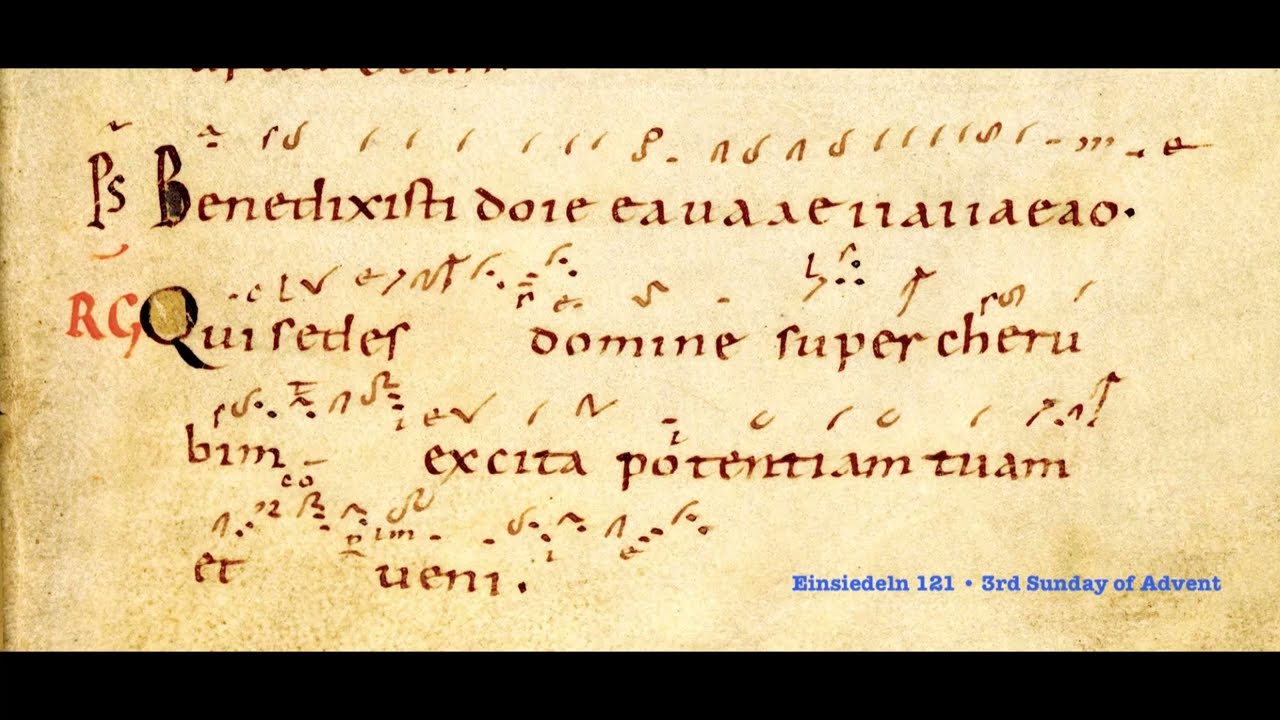 Ps Benedixisti doie eauaaeiiaiiaeao.
RG Qui sedes domine super cheru
bim excita potentiam tuam
et ueni.
Einsiedeln 121 • 3rd Sunday of Advent